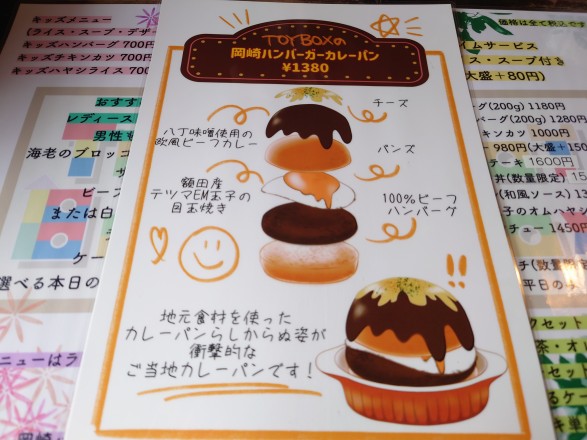 キッズメニュー
(ライス・スープ・デザ
キッズハンバーグ 700円
キッズチキンカツ 700円
キッズハヤシライス
おすす
レディース
男性も
海老のブロッコ
サ
ビーフ
または白
デ
ケー
選べる本日の
ニューはラ
岡崎
TOY BOXの
岡崎ハンバーガーカレーパン
¥1380
チーズ
八丁味噌使用の
欧風ビーフカレー
バンズ
額田産
テツマEM玉子の
目玉焼き
100%ビーフ
ハンバーグ
!!
地元食材を使った
カレーパンらしからぬ姿が
衝撃的な
ご当地カレーパンです!
価格は全て税込です
イムサービス
ス・スープ付き
大盛+80円)
グ(200g) 1180円
バーグ(200g) 1280円
キンカツ 1000円
980円(大盛+150
テーキ 1600円
丼(数量限定) 15
(和風ソース) 13
子のオムハヤシ
チュー 1450円
チ(数量限定
平日の
クセット
茶・オレ
クセット
るケー
キ単